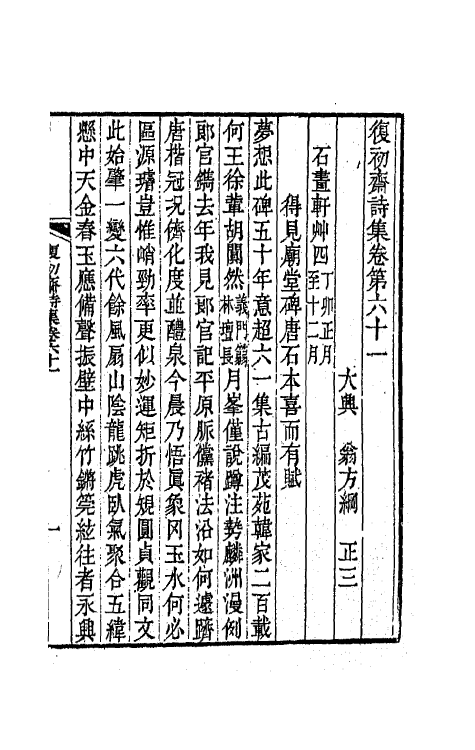 復初齋詩集卷第六十一
大興　翁方綱　正三
石畫軒艸四丁卯正月至十二月
得見廟堂碑唐石本喜而有賦
夢想此碑五十年意超六一集古編茂苑韓家二百載
何王徐董胡闃然義門籜林璮長月峯僅說蹲注勢麟洲漫例
郎官鐫去年我見郎官記平原脈儻褚法沿如何遽躋
唐楷冠況儕化度並醴泉今晨乃悟眞象冈玉水何必
區源璿豈惟峭勁率更似妙運矩折於規圓貞觀同文
此始肇一變六代餘風扇山陰龍跳虎臥氣聚合五緯
懸中天金舂玉應備聲振壁中絲竹鏘筦絃往者永興
復初齋詩集卷六十一
一